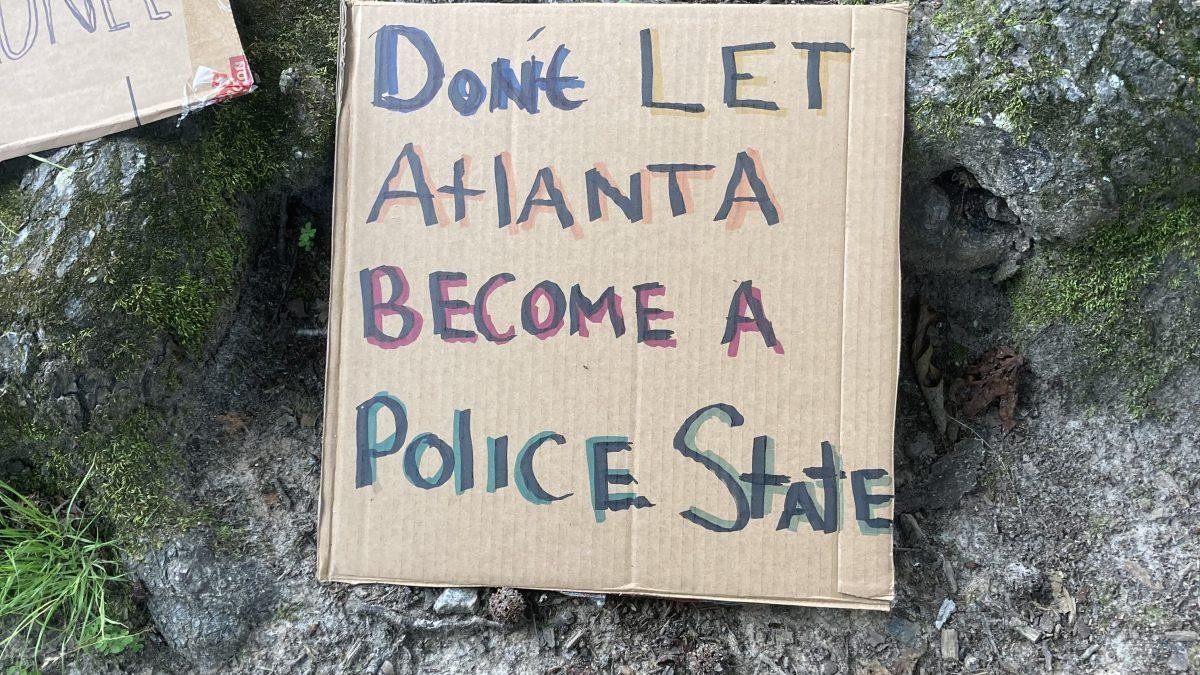 Don't LET
AtlANTA
BECOME A
POlICE StAtE